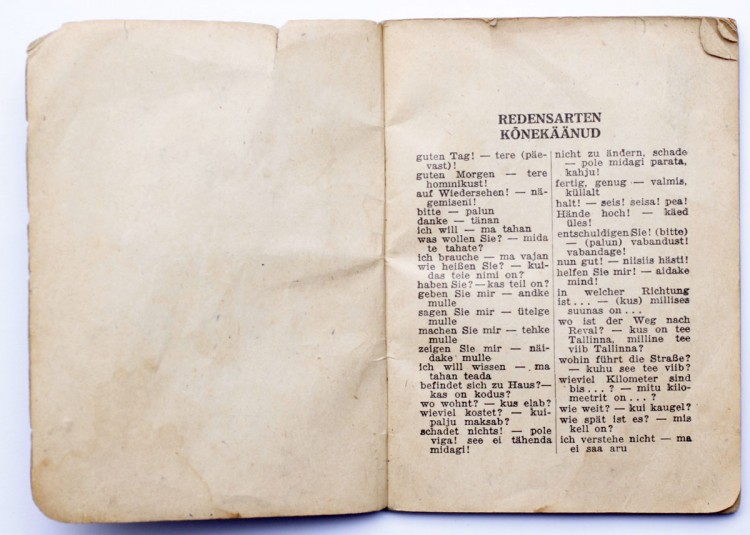 REDENSARTEN
KÕNEKÄÄNUD
guten Tag! — tere (päe-
vast)!
guten Morgen — tere
hommikust!
auf Wiedersehen! — nä-
gemiseni!
bitte — palun
danke — tänan
ich will — ma tahan
was wollen Sie? — mida
te tahate?
ich brauche — ma vajan
wie heißen Sie? — kui-
das teie nimi on?
haben Sie? — kas teil on?
geben Sie mir — andke
mulle
sagen Sie mir — ütelge
mulle
machen Sie mir — tehke
mulle
zeigen Sie mir — näi-
dake mulle
ich will wissen — ma
tahan teada
befindet sich zu Haus? —
kas on kodus?
wo wohnt? — kus elab?
wieviel kostet? — kui-
palju maksab?
schadet nichts! — pole
viga! see ei tähenda
midagi!
nicht zu ändern, schade
— pole midagi parata,
kahju!
fertig, genug — valmis,
küllalt
halt! — seis! seisa! pea!
Hände hoch! — käed
üles!
entschuldigen Sie! (bitte)
— (palun) vabandust!
vabandage!
nun gut! — niisiis hästi!
helfen Sie mir! — aidake
mind!
in welcher Richtung
ist . . . — (kus) millises
suunas on . . .
wo ist der Weg nach
Reval? — kus on tee
Tallinna, milline tee
viib Tallinna?
wohin führt die Straße?
— kuhu see tee viib?
wieviel Kilometer sind
bis . . . ? — mitu kilo-
meetrit on . . . ?
wie weit? — kui kaugel?
wie spät ist es? — mis
kell on?
ich verstehe nicht — ma
ei saa aru